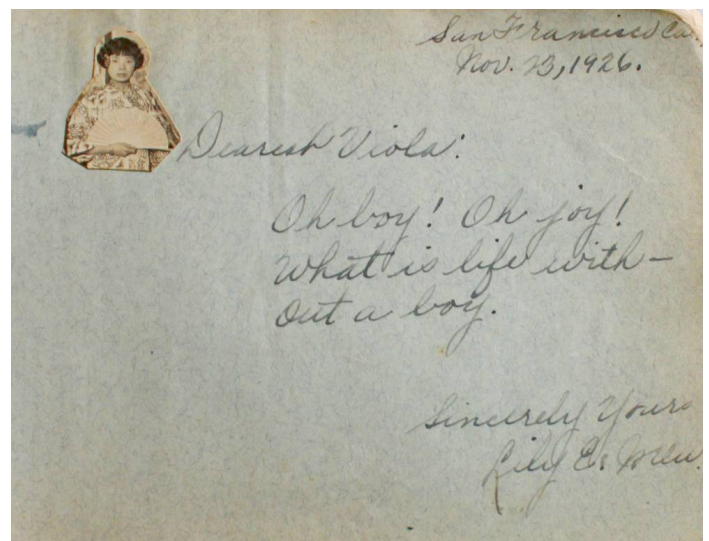 San Francisco Ca.
Nov. 23, 1926.
Dearest Viola:
Oh boy! Oh joy!
What is life with-
out a boy.
Sincerely Yours
Lily E.